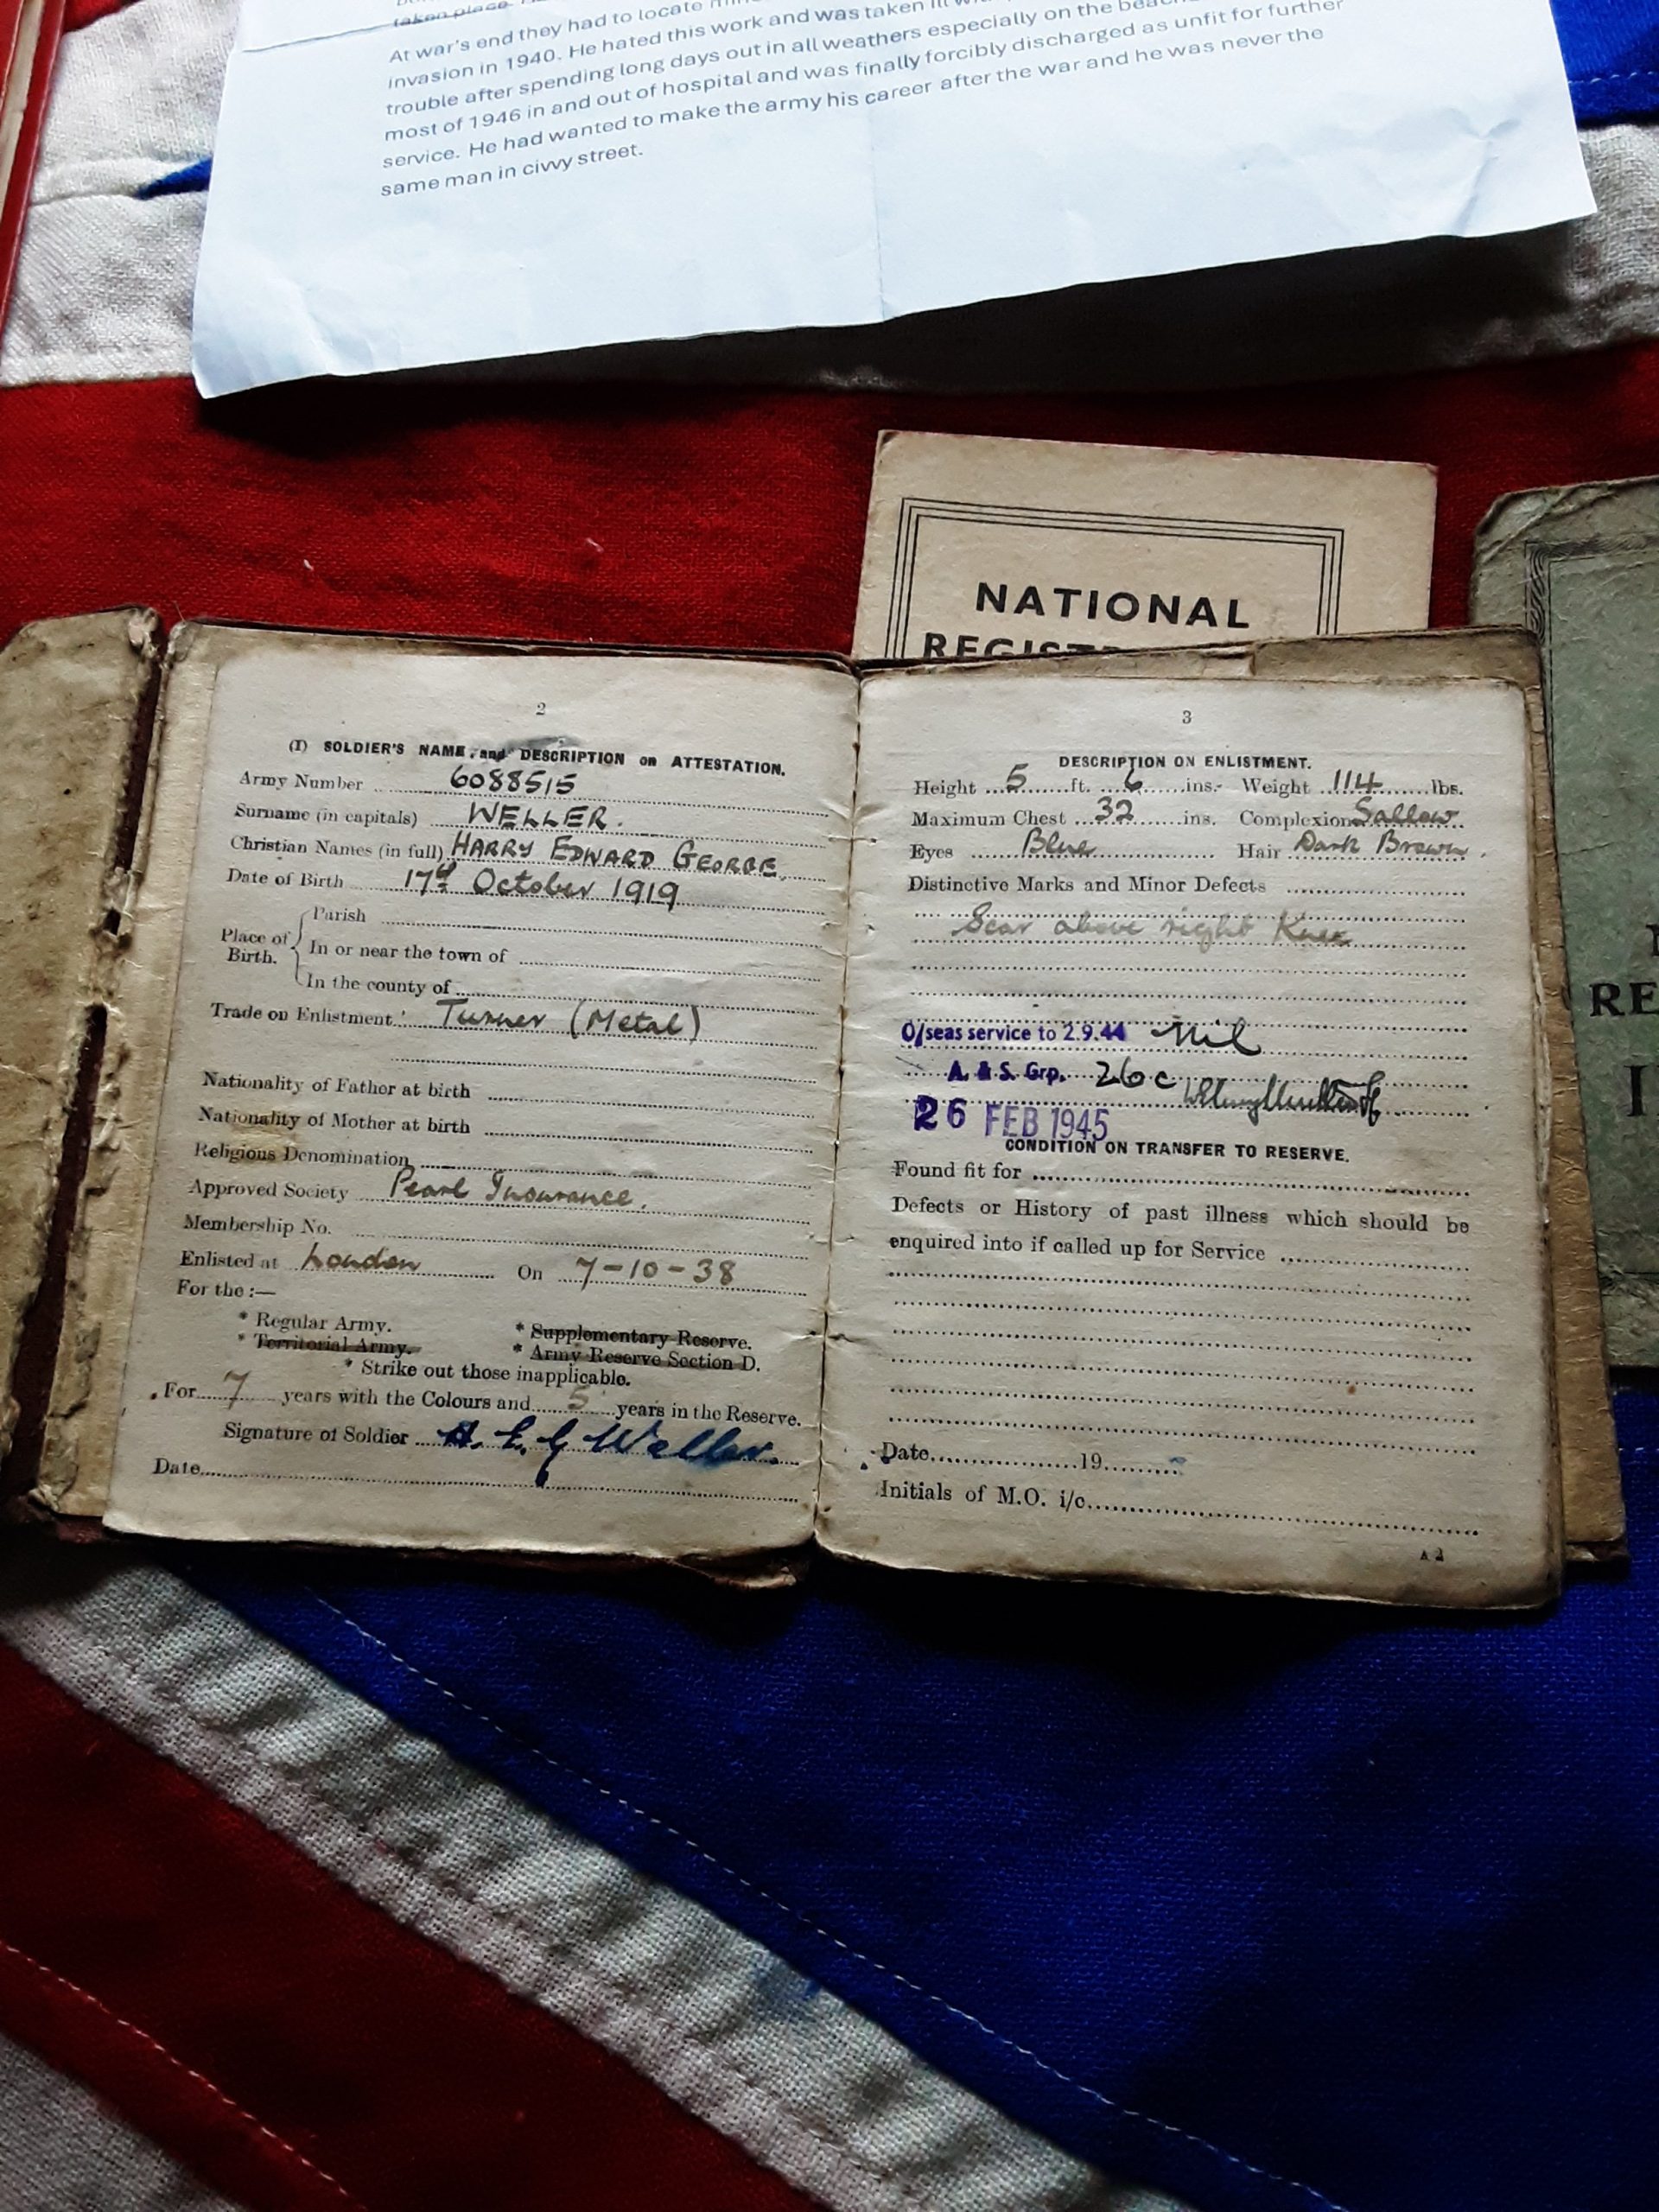 taken place.
At war's end they had to locate
invasion in 1940. He hated this work and was taken ill
trouble after spending long days out in all weathers especially on the
most of 1946 in and out of hospital and was finally forcibly discharged as unfit for further
service. He had wanted to make the army his career after the war and he was never the
same man in civvy street.
NATIONAL
2
(I) SOLDIER'S NAME and DESCRIPTION on ATTESTATION.
Army Number 6088515
Surname (in capitals) WELLER.
Christian Names (in full) HARRY EDWARD GEORGE.
Date of Birth 17th October 1919
Place of Birth.
Parish
In or near the town of
In the county of
Trade on Enlistment Turner (Metal)
Nationality of Father at birth
Nationality of Mother at birth
Religious Denomination
Approved Society Pearl Insurance.
Membership No.
Enlisted at London On 7-10-38
For the :—
* Regular Army. * Supplementary Reserve.
* Territorial Army. * Army Reserve Section D.
* Strike out those inapplicable.
For 7 years with the Colours and 5 years in the Reserve.
Signature of Soldier H. E. G Weller.
Date
3
DESCRIPTION ON ENLISTMENT.
Height 5 ft. 6 ins. Weight 114 lbs.
Maximum Chest 32 ins. Complexion Sallow
Eyes Blue Hair Dark Brown.
Distinctive Marks and Minor Defects
Scar above right Knee
O/seas service to 2.9.44 Nil
A. & S. Grp. 26c
26 FEB 1945
CONDITION ON TRANSFER TO RESERVE.
Found fit for
Defects or History of past illness which should be
enquired into if called up for Service
Date 19
Initials of M.O. i/c
RE